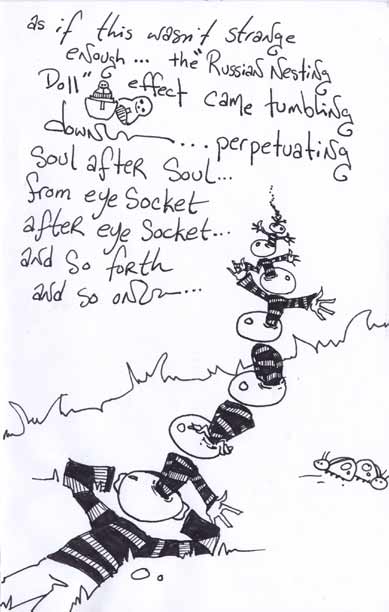 as if this wasn't strange
enough... the "Russian Nesting
Doll" effect came tumbling
down... perpetuating
Soul after Soul...
from eye Socket
after eye Socket...
and so forth
and so on...